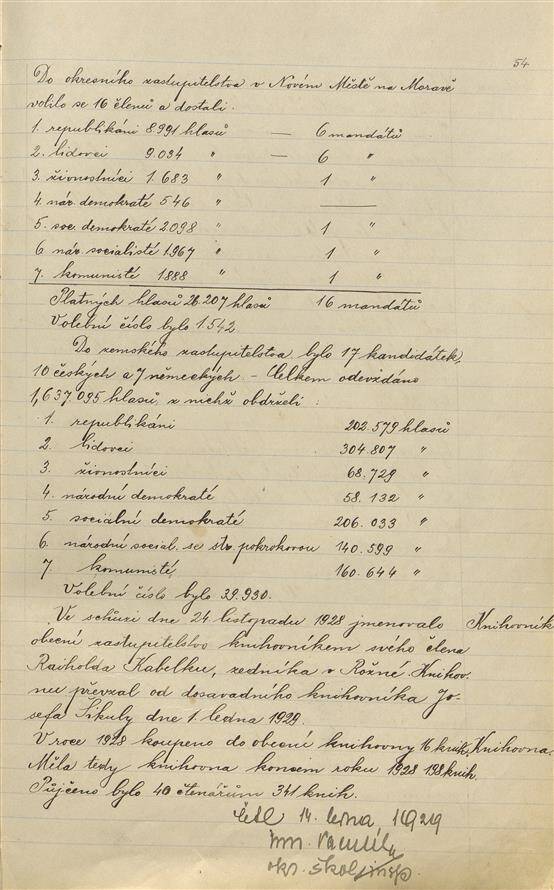 54
Do okresního zastupitelstva v Novém Městě na Moravě
volilo se 16 členů a dostali.
1. republikáni 8991 hlasů — 6 mandátů
2. lidovci 9.034 " — 6 "
3. živnostníci 1.683 " 1 "
4. nár. demokraté 546 " —
5. soc. demokraté 2098 " 1 "
6. nár. socialisté 1967 " 1 "
7. komunisté 1888 " 1 "
Platných hlasů 26.207 hlasů 16 mandátů
Volební číslo bylo 1542.
Do zemského zastupitelstva bylo 17 kandidátek,
10 českých a 7 německých – Celkem odevzdáno
1,637.095 hlasů, z nichž obdrželi:
1. republikáni 202.579 hlasů
2. lidovci 304.807 "
3. živnostníci 68.729 "
4. národní demokraté 58.132 "
5. sociální demokraté 206.033 "
6. národní social. se str. pokrokovou 140.599 "
7. komunisté 160.644 "
Volební číslo bylo 39.930.
Ve schůsi dne 24. listopadu 1928 jmenovalo Knihovník
obecní zastupitelstvo knihovníkem svého člena
Raiholda Kabelku, zedníka v Rožné. Knihov-
nu převzal od dosavadního knihovníka Jo-
sefa Šikuly dne 1. ledna 1929.
V roce 1928 koupeno do obecní knihovny 16 knih, Knihovna.
Měla tedy knihovna koncem roku 1928 198 knih.
Půjčeno bylo 40 čtenářům 341 knih.
Četl 14. ledna 1929
okr. škol. insp.